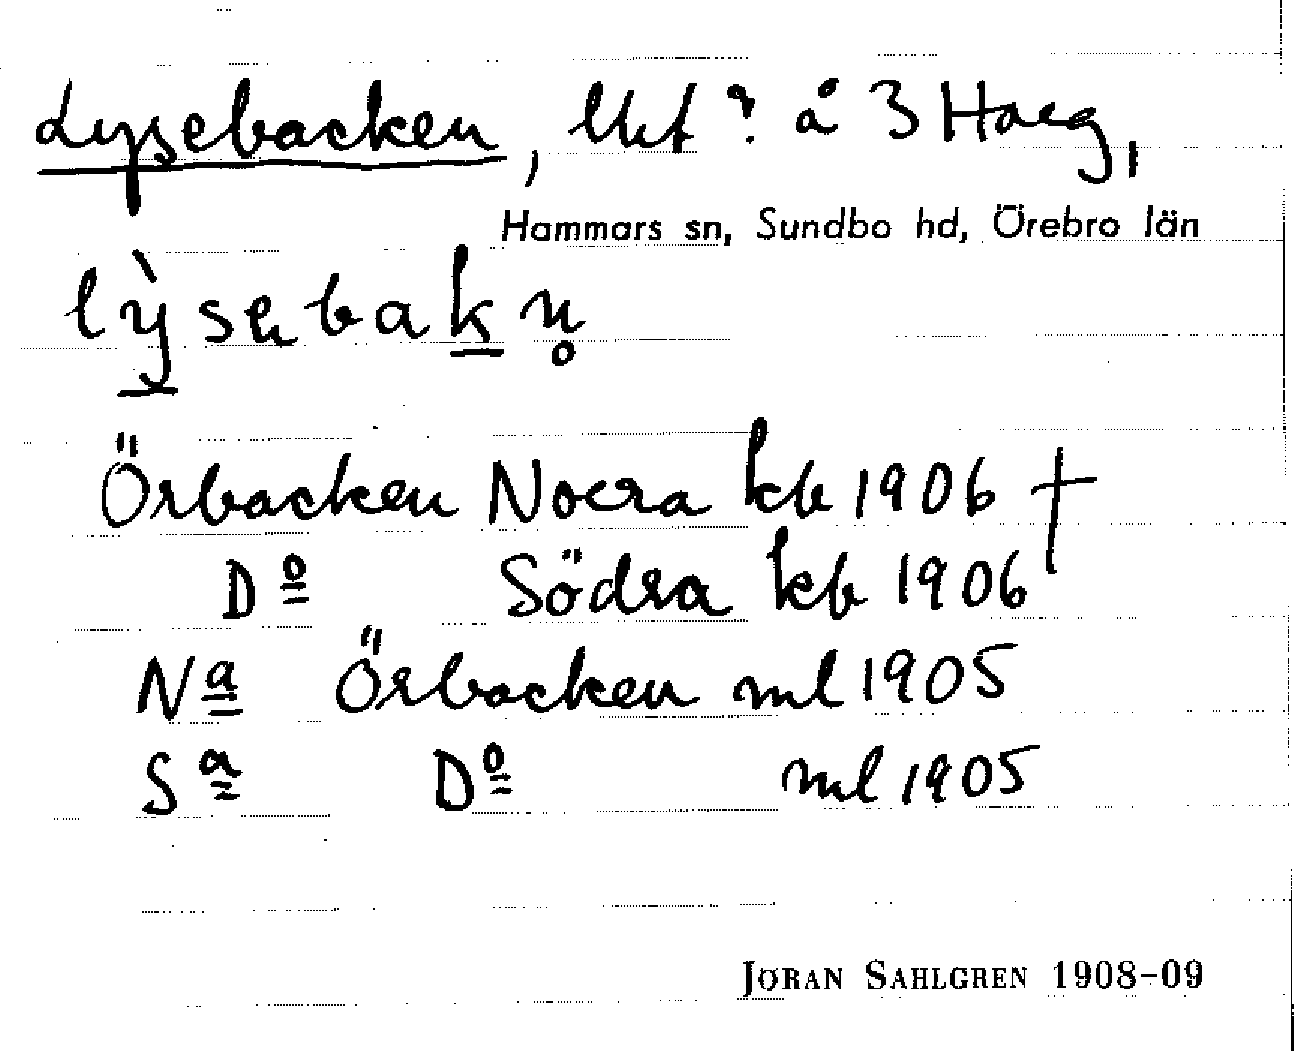 Lysebacken, lht ? å 3 Harg,
Hammars sn, Sundbo hd, Örebro län
lỳsebakn̥
Örbacken Norra kb 1906 †
Dº Södra kb 1906
Nª Örbacken ml 1905
Sª Dº ml 1905
JÖRAN SAHLGREN 1908-09